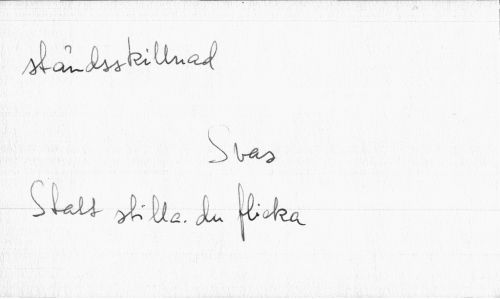 ståndsskillnad
Svas
Statt stilla. du flicka